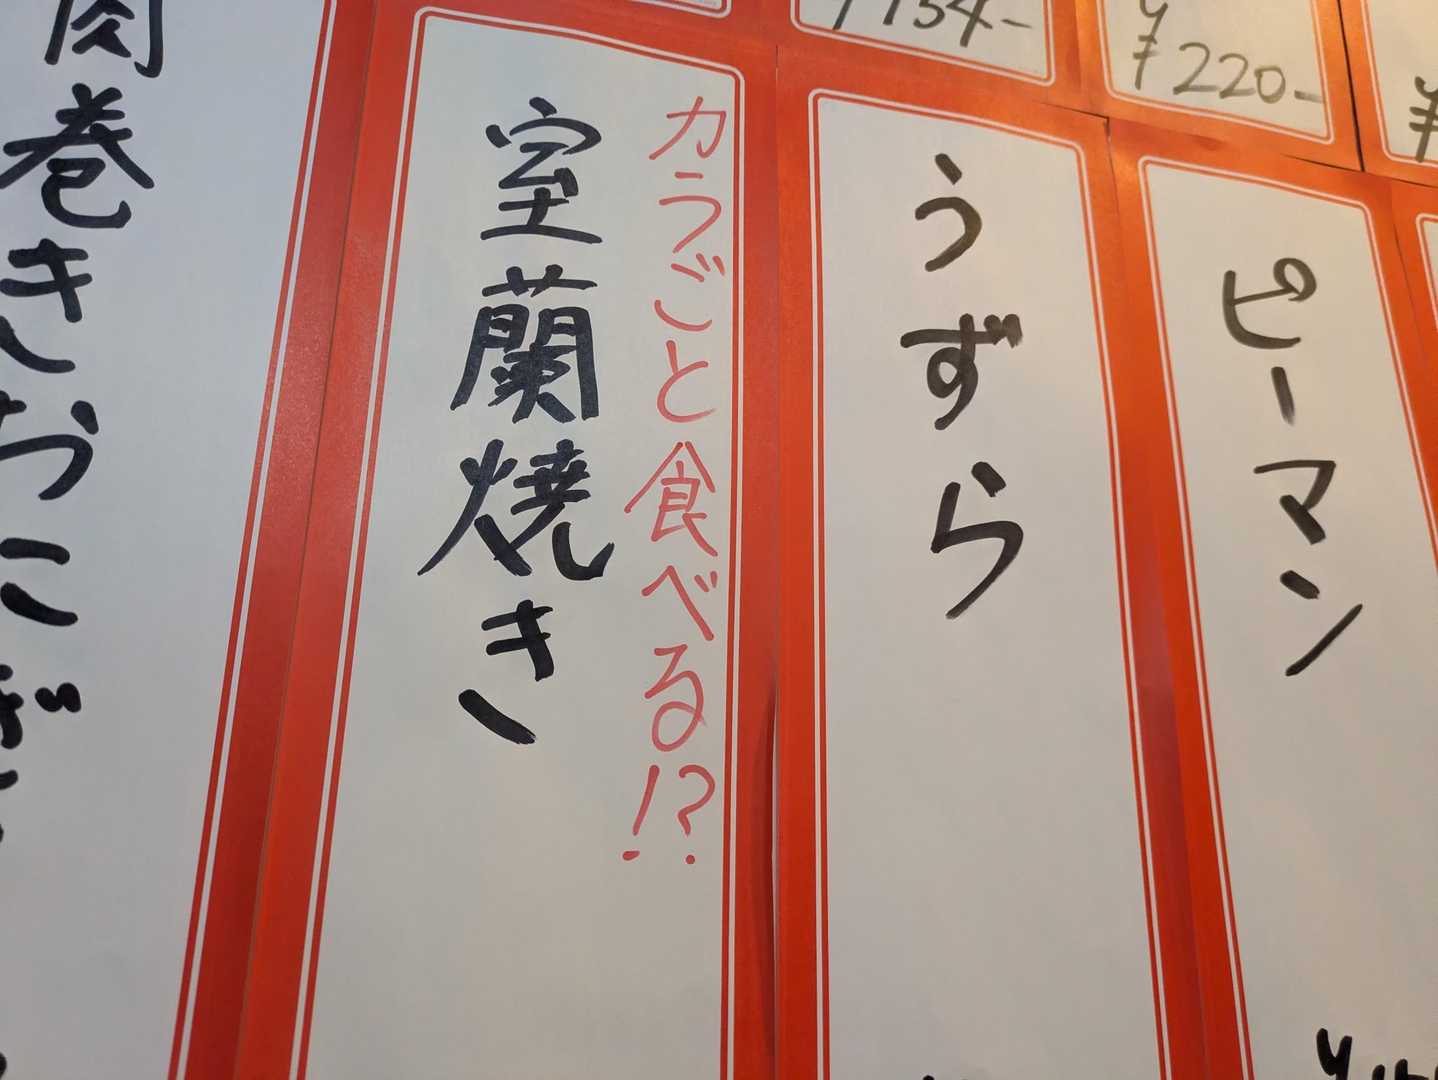 ¥154-
¥220-
ピーマン
うずら
カラごと食べる!?
室蘭焼き
肉巻きおにぎり